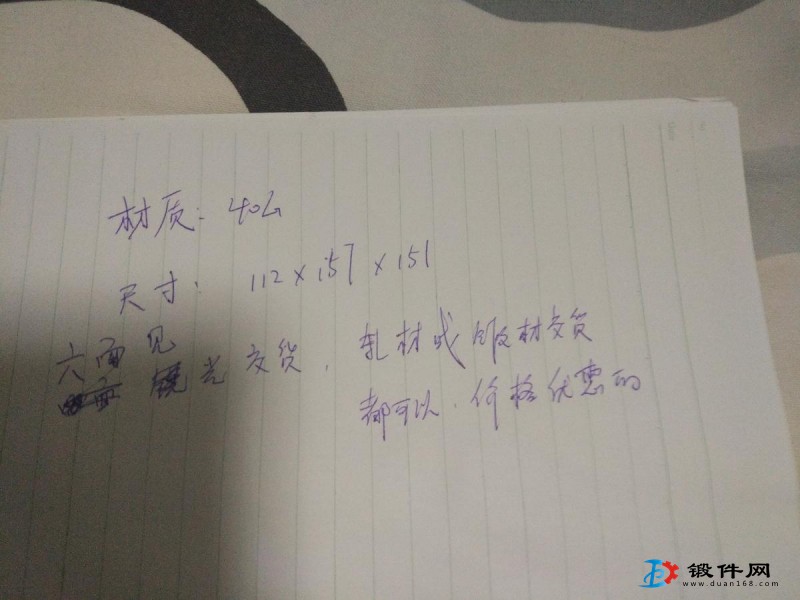 材质: 40Cr
尺寸: 112×157×151
六面见光交货, 轧材或锻材交货
都可以. 价格优惠的
锻件网
www.duan168.com